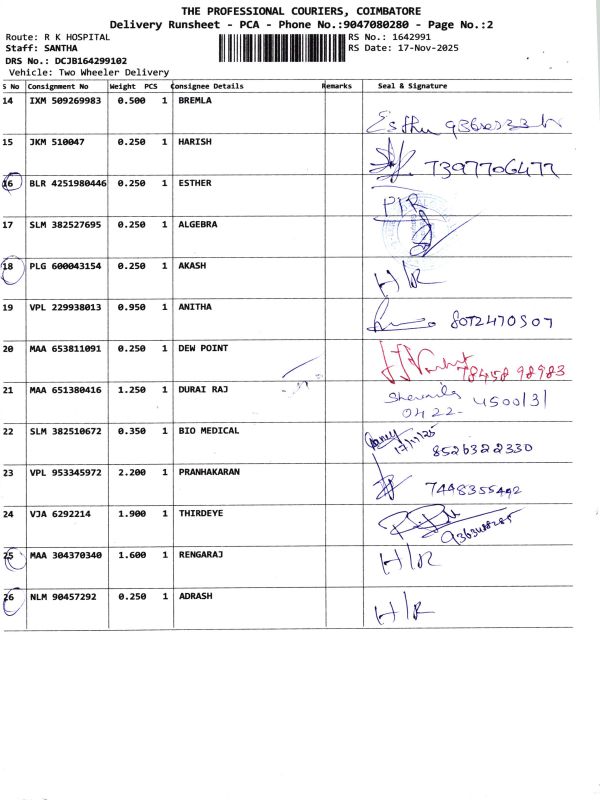 THE PROFESSIONAL COURIERS, COIMBATORE
Delivery Runsheet - PCA - Phone No.:9047080280 - Page No.:2
Route: R K HOSPITAL RS No.: 1642991
Staff: SANTHA RS Date: 17-Nov-2025
DRS No.: DCJB164299102
Vehicle: Two Wheeler Delivery
S No Consignment No Weight PCS Consignee Details Remarks Seal & Signature
14 IXM 509269983 0.500 1 BREMLA
Esther
15 JKM 510047 0.250 1 HARISH
7397706477
16 BLR 4251980446 0.250 1 ESTHER
17 SLM 382527695 0.250 1 ALGEBRA
18 PLG 600043154 0.250 1 AKASH H/R
19 VPL 229938013 0.950 1 ANITHA
8072470507
20 MAA 653811091 0.250 1 DEW POINT
78458 98983
21 MAA 651380416 1.250 1 DURAI RAJ
4500131
0422-
22 SLM 382510672 0.350 1 BIO MEDICAL
17/11/25
8526322330
23 VPL 953345972 2.200 1 PRANHAKARAN
7448355492
24 VJA 6292214 1.900 1 THIRDEYE
25 MAA 304370340 1.600 1 RENGARAJ H/R
26 NLM 90457292 0.250 1 ADRASH H/R